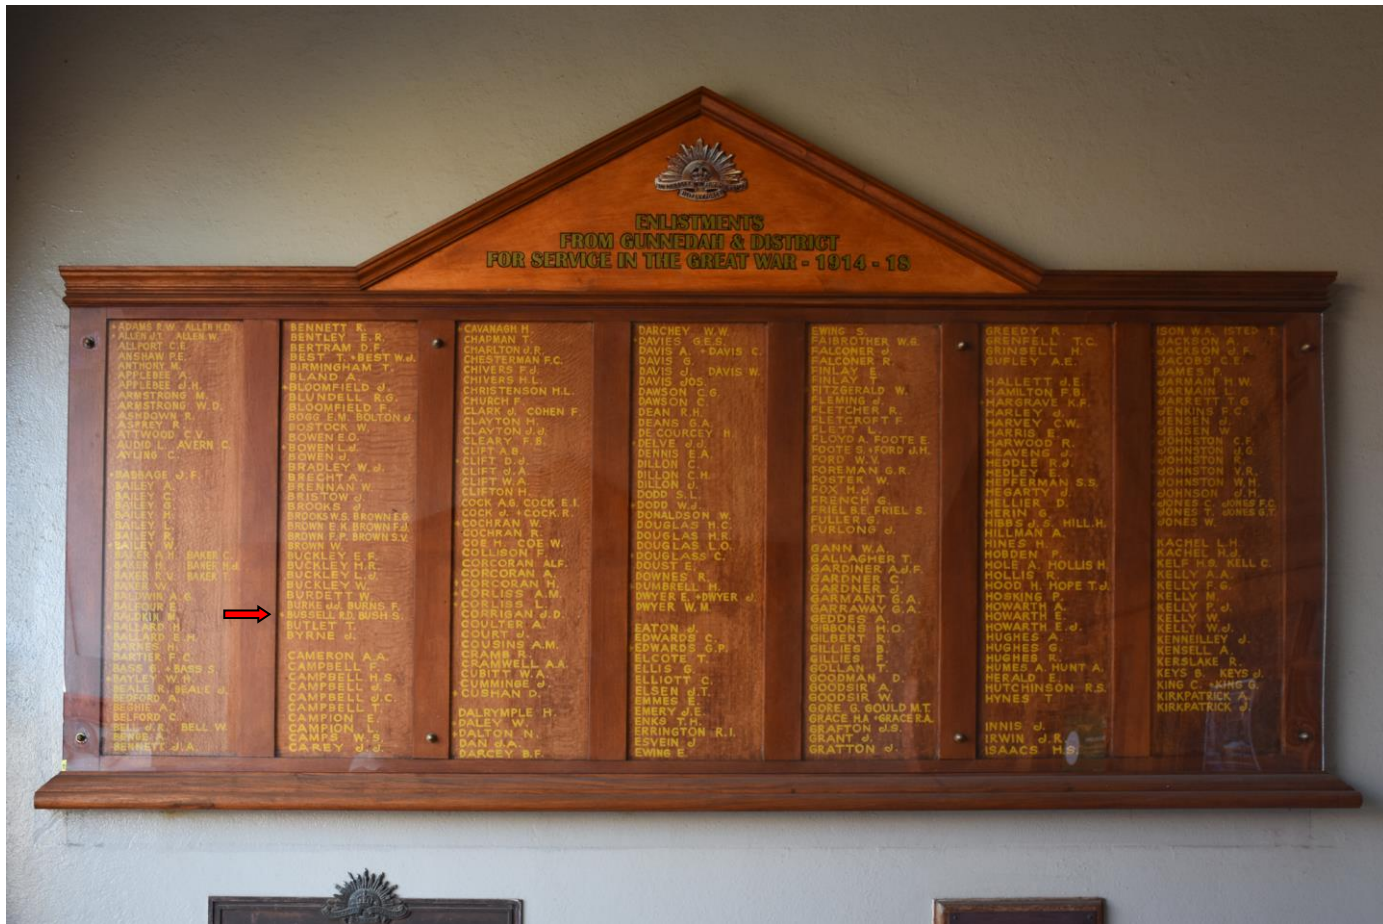 ENLISTMENTS
FROM GUNNEDAH & DISTRICT
FOR SERVICE IN THE GREAT WAR - 1914 - 18
ADAMS R.W. ALLEN H.D.
ALLEN J.T. ALLEN W.
ALLPORT C.E.
ANSHAW P.E.
ANTHONY M.
APPLEBEE A.
APPLEBEE J.H.
ARMSTRONG M.
ARMSTRONG W.D.
ASHDOWN R.
ASPREY R.
ATTWOOD C.V.
AUDID L. AVERN C.
AYLING C.
BABBAGE J.F.
BAILEY A.
BAILEY C.
BAILEY G.
BAILEY H.
BAILEY L.
BAILEY R.
BAILEY W.
BAKER A.H. BAKER C.
BAKER H. BAKER H.J.
BAKER R.V. BAKER T.
BALDWIN A.
BALDWIN A.G.
BALFOUR E.
BALLARD H.
BALLARD E.H.
BARNES H.
BARTIER F.C.
BASS C. BASS S.
BAYLEY W.H.
BEALE R. BEALE J.
BEDFORD A.
BELFORD C.
BELL J.R. BELL W.
BENNETT J.A.
BENNETT R.
BENTLEY E.R.
BERTRAM D.F.
BEST T. BEST W.J.
BIRMINGHAM T.
BLAND A.
BLOOMFIELD J.
BLUNDELL R.G.
BLOOMFIELD F.
BOGG E.M. BOLTON J.
BOSTOCK W.
BOWEN E.O.
BOWEN L.J.
BOWEN J.
BRADLEY W.J.
BRECHT A.
BRENNAN W.
BRISTOW J.
BROOKS J.
BROOKS W.S. BROWN E.G.
BROWN E.K. BROWN F.J.
BROWN F.P. BROWN S.V.
BROWN W.
BUCKLEY E.F.
BUCKLEY H.R.
BUCKLEY L.J.
BUCKLEY W.
BURDETT W.
BURKE J.J. BURNS F.
BUSSELL R.D. BUSH S.
BUTLER T.
BYRNE J.
CAMERON A.A.
CAMPBELL F.
CAMPBELL H.S.
CAMPBELL J.
CAMPBELL J.
CAMPBELL J.C.
CAMPBELL T.
CAMPION E.
CAMPION L.
CAMPS W.S.
CAREY J.J.
CAVANAGH H.
CHAPMAN T.
CHARLTON J.R.
CHESTERMAN F.C.
CHIVERS F.J.
CHIVERS H.L.
CHRISTENSON H.L.
CHURCH F.
CLARK J. COHEN F.
CLAYTON H.
CLAYTON J.J.
CLEARY F.B.
CLIFT A.B.
CLIFT D.J.
CLIFT J.A.
CLIFT W.A.
CLIFTON H.
COCK A.G. COCK E.I.
COCK J. COCK R.
COCHRAN W.
COCHRAN R.
COE H. COE W.
COLLISON F.
CORCORAN ALF.
CORCORAN A.
CORCORAN H.
CORLISS A.M.
CORLISS L.
CORRIGAN J.D.
COULTER A.
COURT J.
COUSINS A.M.
CRAMB R.
CRAMWELL A.A.
CUBITT W.A.
CUMMINGE J.
CUSHAN D.
DALRYMPLE H.
DALEY W.
DALTON N.
DAN J.A.
DARCEY B.F.
DARCHEY W.W.
DAVIES G.E.S.
DAVIS A. DAVIS C.
DAVIS G.
DAVIS J. DAVIS W.
DAVIS JOS.
DAWSON C.G.
DAWSON C.
DEAN R.H.
DEANS G.A.
DE COURCEY H.
DELVE J.J.
DENNIS E.A.
DILLON C.
DILLON C.H.
DILLON J.
DODD S.L.
DODD W.J.
DONALDSON W.
DOUGLAS H.C.
DOUGLAS H.R.
DOUGLAS L.O.
DOUGLASS C.
DOUST E.
DOWNES R.
DUMBRELL H.
DWYER E. DWYER J.
DWYER W.M.
EATON J.
EDWARDS C.
EDWARDS G.P.
ELCOTE T.
ELLIS G.
ELLIOTT C.
ELSEN J.T.
EMMES E.
EMERY J.E.
ENKS T.H.
ERRINGTON R.I.
ESVEIN J.
EWING E.
EWING S.
FAIBROTHER W.G.
FALCONER J.
FALCONER R.
FINLAY E.
FINLAY T.
FITZGERALD W.
FLEMING J.
FLETCHER R.
FLETCROFT F.
FLETT L.
FLOYD A. FOOTE E.
FOOTE S. FORD J.H.
FORD W.V.
FOREMAN G.R.
FOSTER W.
FOX H.J.
FRENCH G.
FRIEL B.E. FRIEL S.
FULLER G.
FURLONG J.
GANN W.A.
GALLAGHER T.
GARDINER A.J.F.
GARDNER C.
GARDNER J.
GARMANT G.A.
GARRAWAY G.A.
GEDDES A.
GIBBONS H.O.
GILBERT R.
GILLIES B.
GILLIES E.
GOLLAN T.
GOODMAN D.
GOODSIR A.
GOODSIR W.
GORE G. GOULD M.T.
GRACE H.A. GRACE R.A.
GRAFTON J.S.
GRANT J.
GRATTON J.
GREEDY R.
GRENFELL T.C.
GRINSELL H.
GUFLEY A.E.
HALLETT J.E.
HAMILTON F.B.
HARGRAVE K.F.
HARLEY J.
HARVEY C.W.
HARRIS E.
HARWOOD R.
HEAVENS J.
HEDDLE R.J.
HEDLEY J.
HEPFERMAN S.S.
HEGARTY J.
HELLIER D.
HERING G.
HIBBS J.S. HILL H.
HILLMAN A.
HINES H.
HOBDEN P.
HOLE A. HOLLIS H.
HOLLIS R.
HOOD M. HOPE T.J.
HOSKING P.
HOWARTH A.
HOWARTH E.
HOWARTH E.J.
HUGHES A.
HUGHES G.
HUGHES R.
HUMES A. HUNT A.
HERALD E.
HUTCHINSON R.S.
HYNES T.
INNIS J.
IRWIN J.R.
ISAACS H.S.
ISON W.A. ISTED T.
JACKSON A.
JACKSON E.R.
JACOBS C.E.
JAMES P.
JARMAIN H.W.
JARMAIN L.
JARRETT T.G.
JENKINS F.C.
JENSEN J.
JENSEN W.
JOHNSTON C.F.
JOHNSTON J.G.
JOHNSTON J.
JOHNSTON V.R.
JOHNSTON W.H.
JOHNSON J.H.
JONES C. JONES F.C.
JONES W.
KACHEL L.H.
KACHEL H.J.
KELF H.G. KELL C.
KELLY A.A.
KELLY G.
KELLY M.
KELLY P.J.
KELLY W.
KELLY W.J.
KENNEILLEY J.
KENSELL A.
KERSLAKE R.
KEYS B. KEYS J.
KING C. KING G.
KIRKPATRICK A.
KIRKPATRICK J.